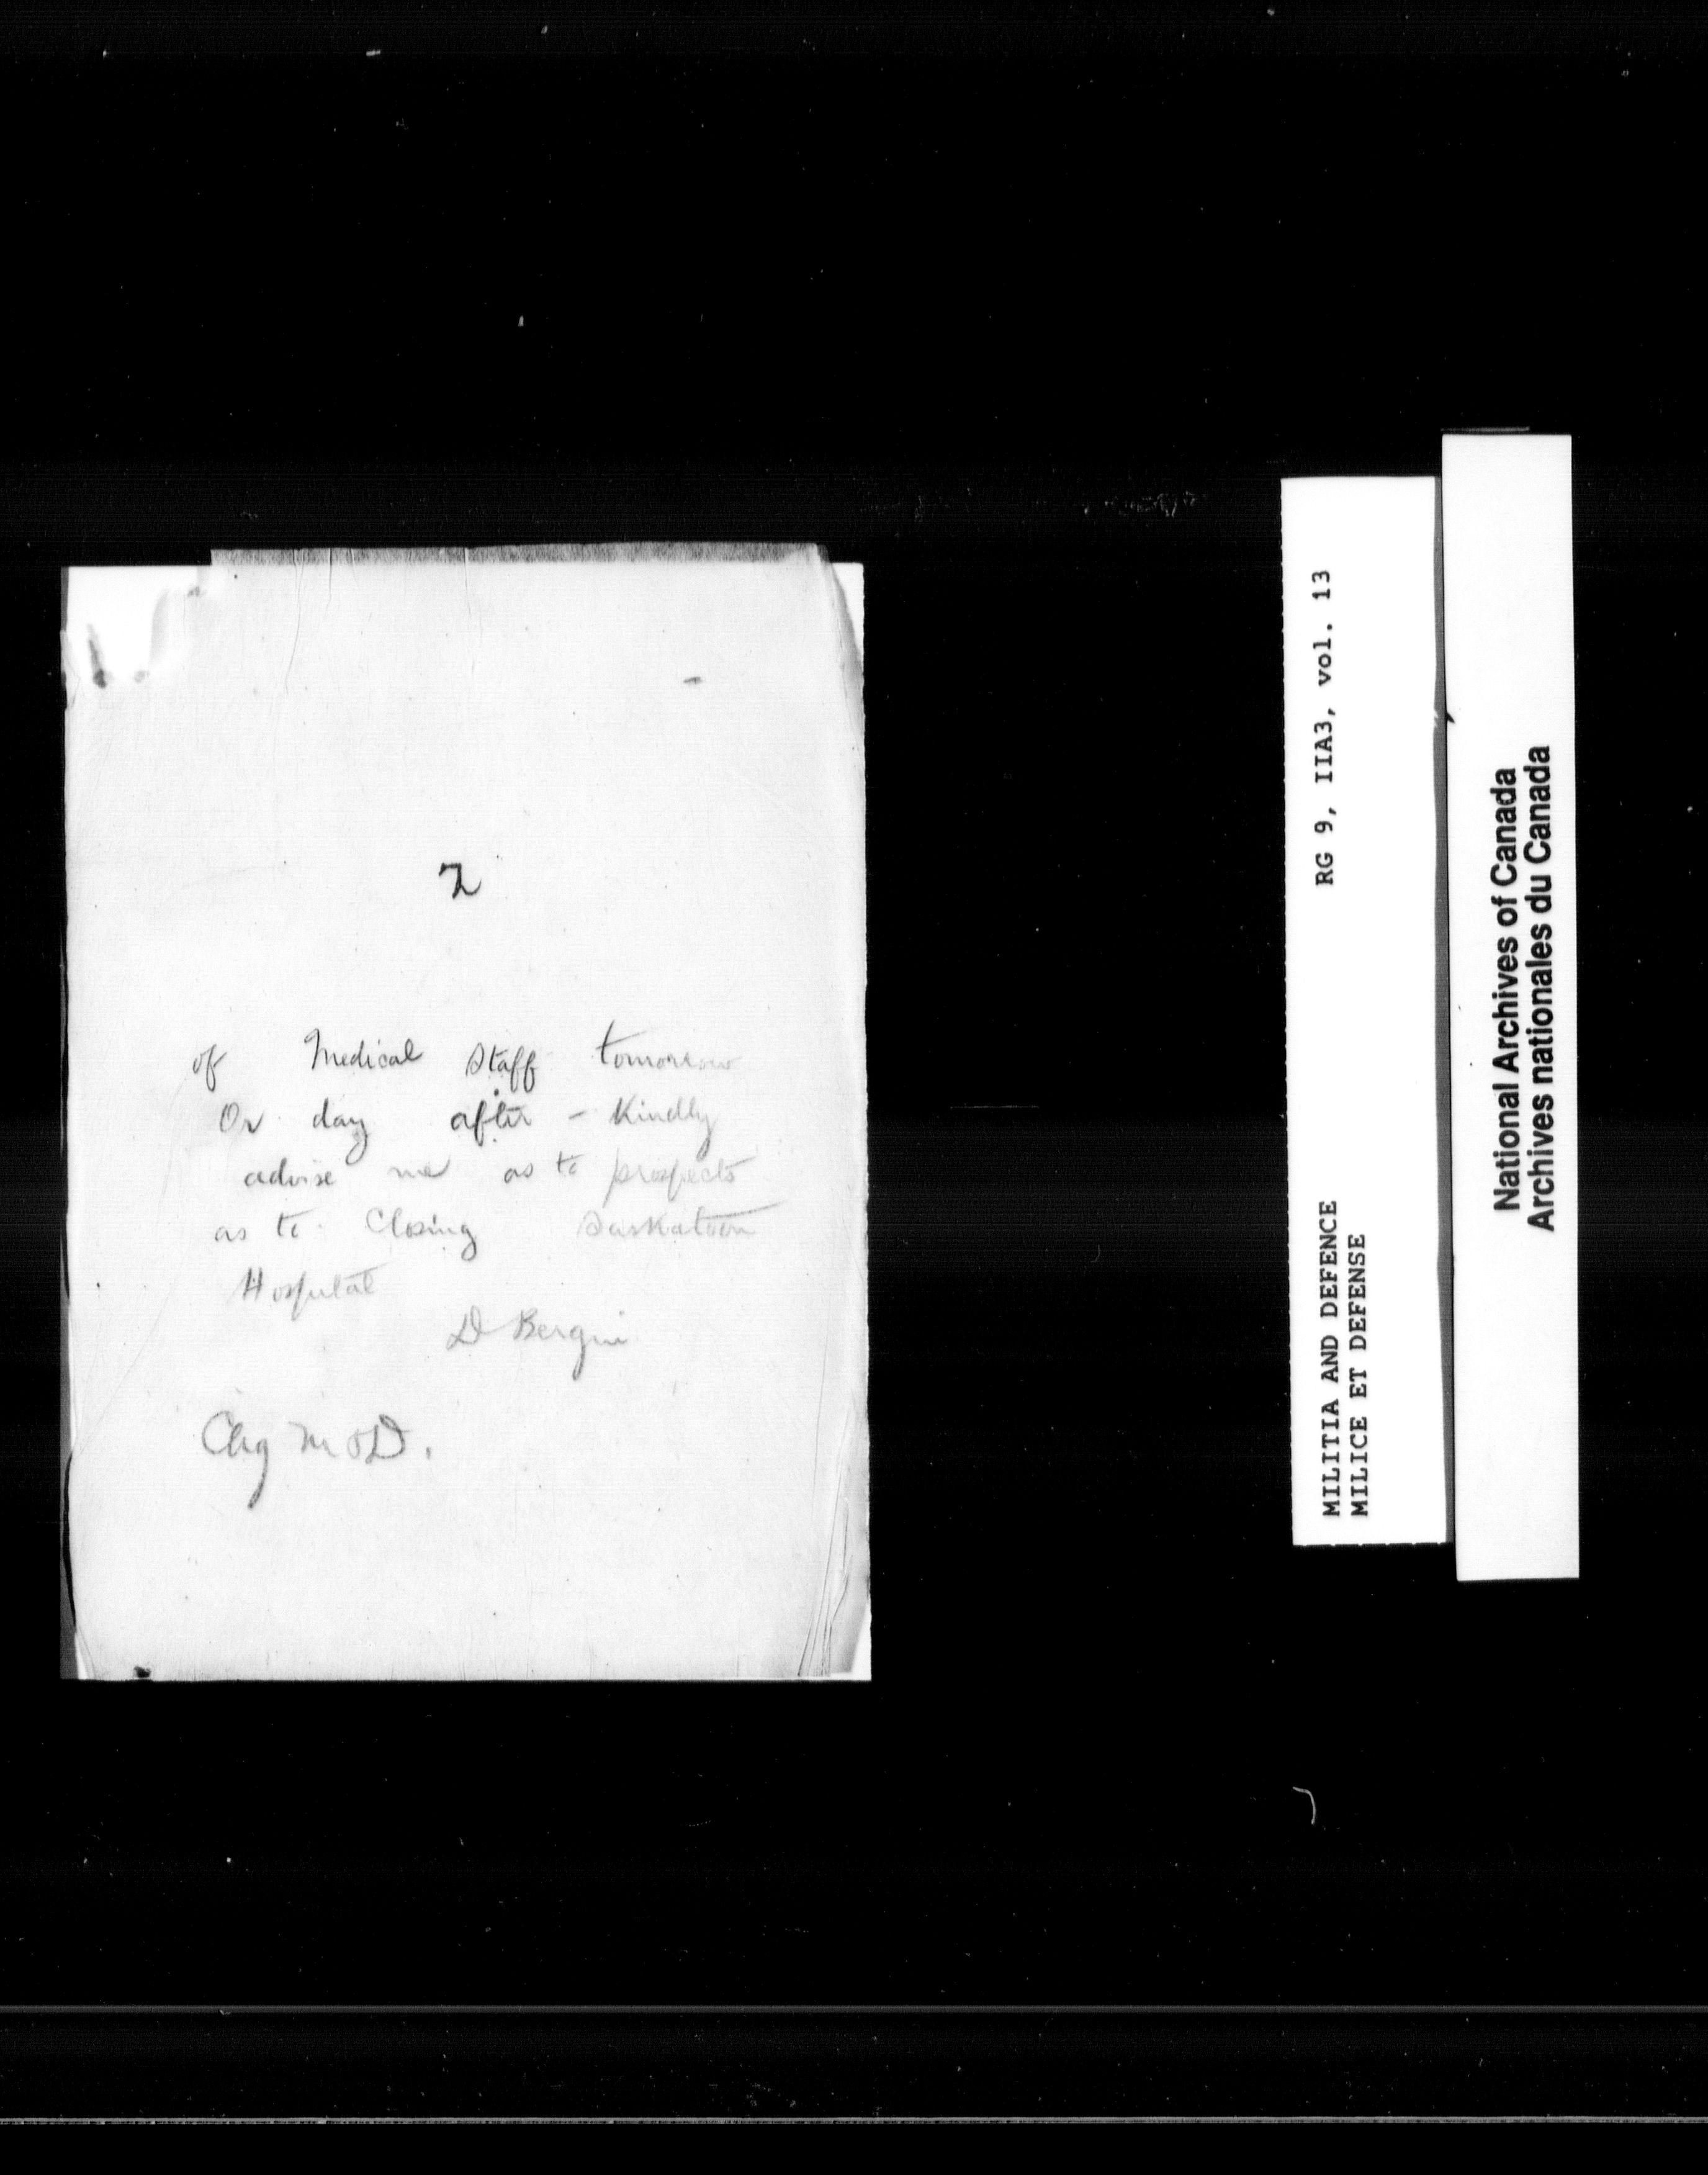 2
of Medical Staff tomorrow
Or day after - Kindly
advise me as to prospects
as to Closing Saskatoon
Hospital
D Bergin
Chg M & D.
RG 9, IIA3, vol. 13
MILITIA AND DEFENCE
MILICE ET DEFENSE
National Archives of Canada
Archives nationales du Canada